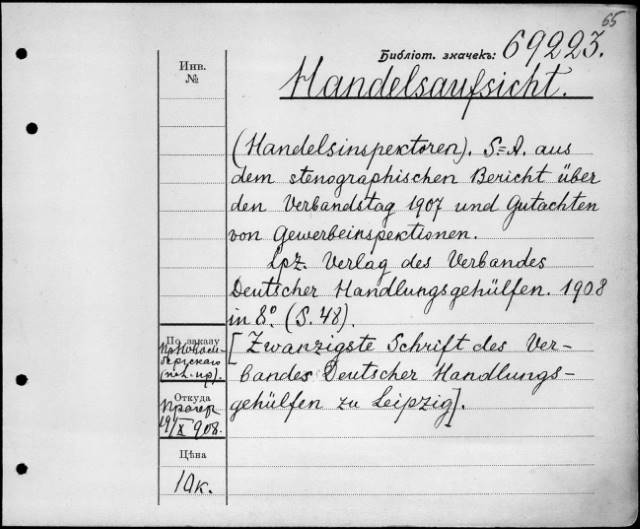 65
Библіот. значекъ: 69223.
Инв.
№
Handelsaufsicht.
(Handelsinspektoren). S=A. aus
dem stenographischen Bericht über
den Verbandstag 1907 und Gutachten
von Gewerbeinspektionen.
Lpz. Verlag des Verbandes
Deutscher Handlungsgehülfen. 1908
in 8°. (S. 48).
[Zwanzigste Schrift des Ver-
bandes Deutscher Handlungs-
gehülfen zu Leipzig].
По заказу
Откуда
Прагер
19/X 908.
Цѣна
10 к.